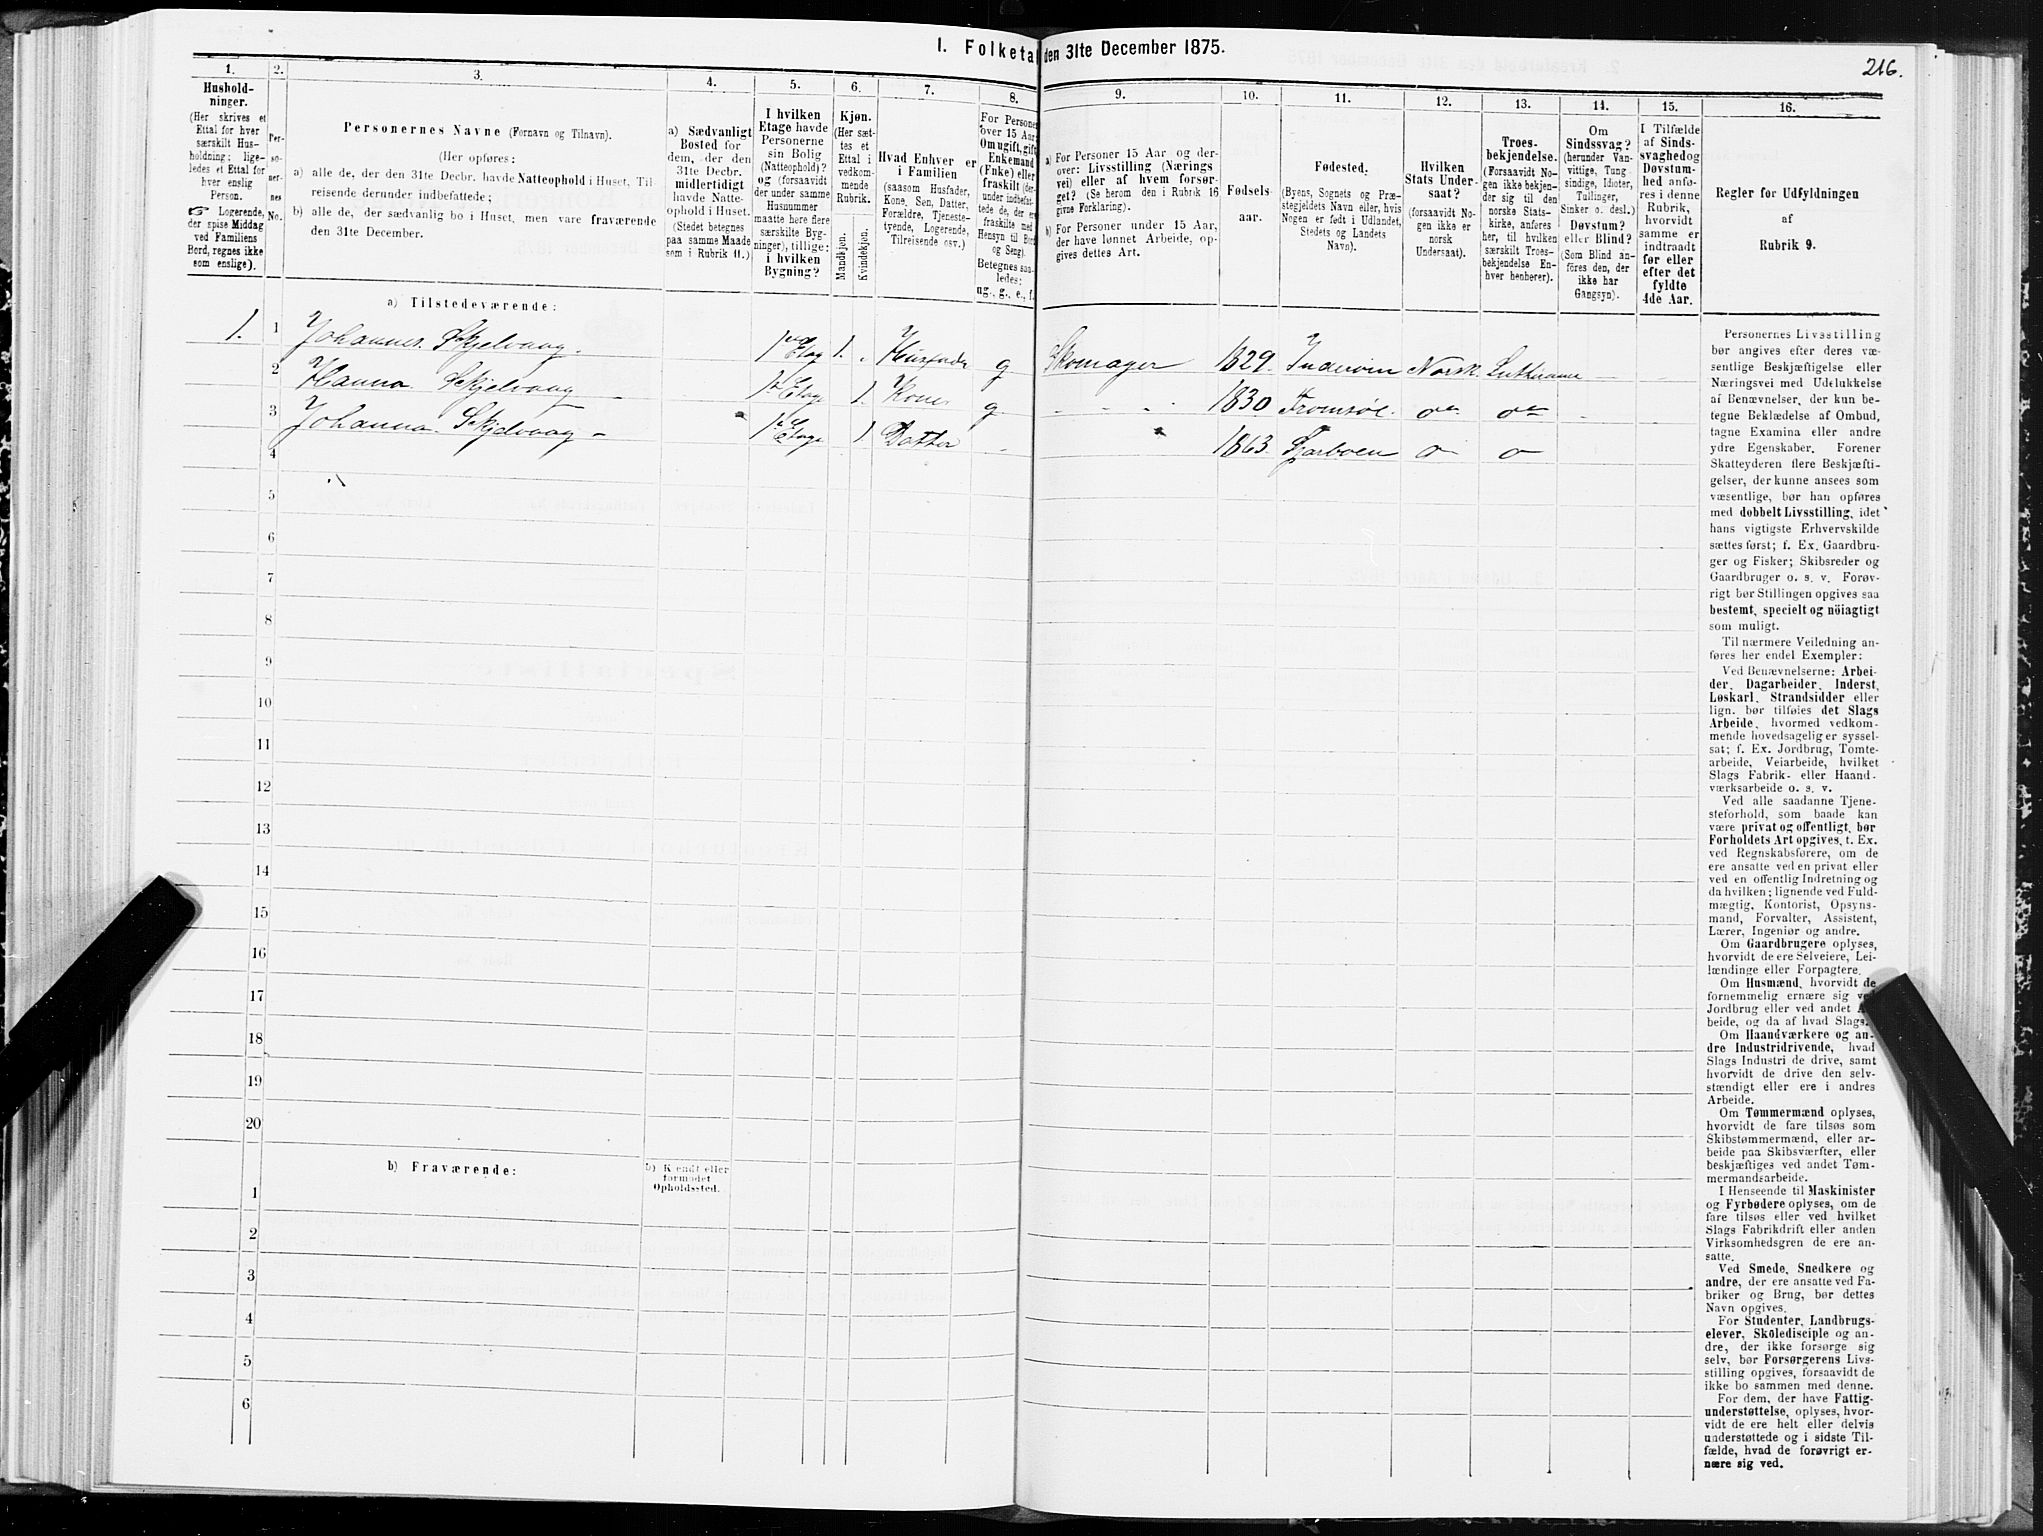 I. Folketal den 31te December 1875.
216.
1.
Husholdninger.
(Her skrives et Ettal for hver særskilt Husholdning; ligeledes et Ettal for hver enslig Person.
☞ Logerende, der spise Middag ved Familiens Bord, regnes ikke som enslige).
2.
Personernes No.
3.
Personernes Navne (Fornavn og Tilnavn).
(Her opføres:
a) alle de, der den 31te Decbr. havde Natteophold i Huset, Tilreisende derunder indbefattede;
b) alle de, der sædvanlig bo i Huset, men vare fraværende den 31te December.
4.
a) Sædvanligt Bosted for dem, der den 31te Decbr. midlertidigt havde Natteophold i Huset. (Stedet betegnes paa samme Maade som i Rubrik 11.)
5.
I hvilken Etage havde Personerne sin Bolig (Natteophold)? og (forsaavidt der under samme Husnummer maatte være flere særskilte Bygninger), tillige: i hvilken Bygning?
6.
Kjøn.
(Her sættes et Ettal i vedkommende Rubrik.
Mandkjøn.
Kvindekjøn.
7.
Hvad Enhver er i Familien
(saasom Husfader, Kone, Søn, Datter, Forældre, Tjenestetyende, Logerende, Tilreisende osv.)
8.
For Personer over 15 Aar: Om ugift, gift, Enkemand (Enke) eller fraskilt (derunder indbefattede de, der ere fraskilte med Hensyn til Bord og Seng). Betegnes saaledes: ug., g., e., f.
9.
a) For Personer 15 Aar og derover: Livsstilling (Næringsvei) eller af hvem forsørget? (Se herom den i Rubrik 16 givne Forklaring).
b) For Personer under 15 Aar, der have lønnet Arbeide, opgives dettes Art.
10.
Fødselsaar.
11.
Fødested.
(Byens, Sognets og Præstegjeldets Navn eller, hvis Nogen er født i Udlandet, Stedets og Landets Navn).
12.
Hvilken Stats Undersaat?
(forsaavidt Nogen ikke er norsk Undersaat).
13.
Troesbekjendelse.
(Forsaavidt Nogen ikke bekjender sig til den norske Statskirke, anføres her, til hvilken særskilt Troesbekjendelse Enhver henhører).
14.
Om Sindssvag? (herunder Vanvittige, Tungsindige, Idioter, Tullinger, Sinker o. desl.) Døvstum? eller Blind? (Som Blind anføres den, der ikke har Gangsyn).
15.
I Tilfælde af Sindssvaghed og Døvstumhed anføres i denne Rubrik, hvorvidt samme er indtraadt før eller efter det fyldte 4de Aar.
16.
Regler for Udfyldningen
af
Rubrik 9.
a) Tilstedeværende:
1. 1 Johannes Skjelvaag. 1ste Etag 1. Husfader g Skomager 1829. Inderøen Norsk. Lutheraner
2 Hanna Skjelvaag 1ste Etage 1. Kone g 1830 Tromsøe do do
3 Johanna Skjelvaag 1ste Etage 1. Datter 1863.
4
5
6
7
8
9
10
11
12
13
14
15
16
17
18
19
20
b) Fraværende:
b) Kendt eller formodet Opholdssted.
1
2
3
4
5
6
Personernes Livsstilling
bør angives efter deres væsentlige Beskjæftigelse eller
Næringsvei med Udelukkelse
af Benævnelser, der kun betegne Beklædelse af Ombud,
tagne Examina eller andre
ydre Egenskaber. Forener
Skatteyderen flere Beskjæftigelser, der kunne ansees som
væsentlige, bør han opføres
med dobbelt Livsstilling, idet
hans vigtigste Erhvervskilde
sættes først; f. Ex. Gaardbruger og Fisker; Skibsreder og
Gaardbruger o. s. v. Forøvrigt bør Stillingen opgives saa
bestemt, specielt og nöiagtigt
som muligt.
Til nærmere Veiledning anføres her endel Exempler:
Ved Benævnelserne: Arbeider, Dagarbeider, Inderst,
Løskarl, Strandsidder eller
lign. bør tilføies det Slags
Arbeide, hvormed vedkommende hovedsagelig er sysselsat; f. Ex. Jordbrug, Tomtearbeide, Veiarbeide, hvilket
Slags Fabrik- eller Haandværksarbeide o. s. v.
Ved alle saadanne Tjenesteforhold, som baade kan
være privat og offentligt, bør
Forholdets Art opgives, t. Ex.
ved Regnskabsførere, om de
ere ansatte ved en privat eller
ved en offentlig Indretning og
da hvilken; lignende ved Fuldmægtig, Kontorist, Opsynsmand, Forvalter, Assistent,
Lærer, Ingeniør og andre.
Om Gaardbrugere oplyses,
hvorvidt de ere Selveiere, Leilændinge eller Forpagtere.
Om Husmænd, hvorvidt de
fornemmelig ernære sig ved
Jordbrug eller ved andet Arbeide, og da af hvad Slags.
Om Haandværkere og andre Industridrivende, hvad
Slags Industri de drive, samt
hvorvidt de drive den selvstændigt eller ere i andres
Arbeide.
Om Tømmermænd oplyses,
hvorvidt de fare tilsøs som
Skibstømmermænd, eller arbeide paa Skibsværfter, eller
beskjæftiges ved andet Tømmermandsarbeide.
I Henseende til Maskinister
og Fyrbødere oplyses, om de
fare tilsøs eller ved hvilket
Slags Fabrikdrift eller anden
Virksomhedsgren de ere ansatte.
Ved Smede, Snedkere og
andre, der ere ansatte ved Fabriker og Brug, bør dettes
Navn opgives.
For Studenter, Landbrugselever, Skoledisciple og andre, der ikke forsørge sig
selv, bør Forsørgerens Livsstilling opgives, forsaavidt de
ikke bo sammen med denne.
For dem, der have Fattigunderstøttelse, oplyses, hvorvidt de ere helt eller delvis
understøttede og i sidste Tilfælde, hvad de forøvrigt ernære sig ved.